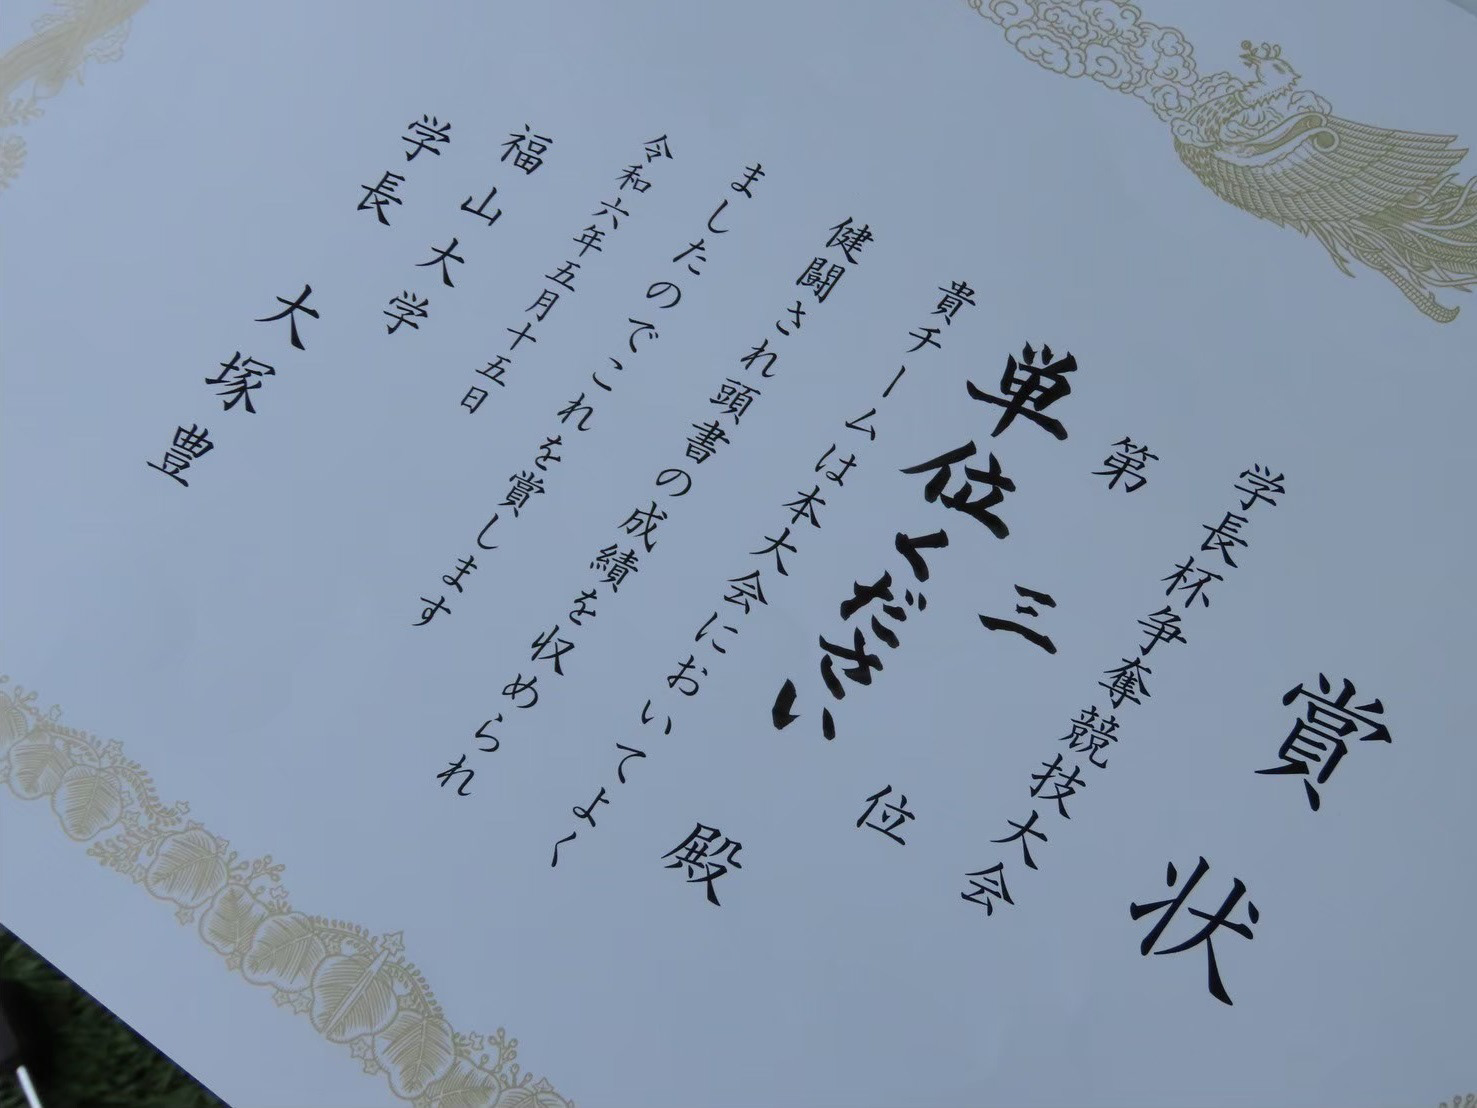 賞状
学長杯争奪競技大会
第三位
単位ください 殿
貴チームは本大会においてよく
健闘され頭書の成績を収められ
ましたのでこれを賞します
令和六年五月十五日
福山大学
学長 大塚豊